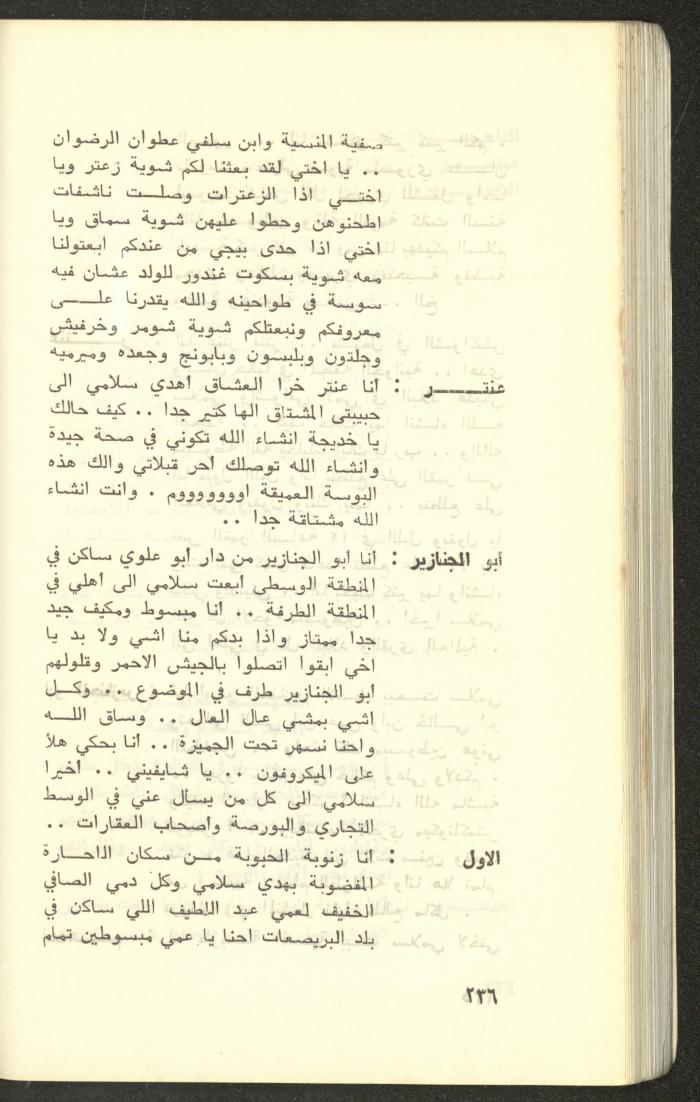 صفية المنسية وابن سلفي عطوان الرضوان
.. يا اختي لقد بعثنا لكم شوية زعتر ويا
اختـــي اذا الزعترات وصلــت ناشفات
اطحنوهن وحطوا عليهن شوية سماق ويا
اختي اذا حدى بيجي من عندكم ابعتولنا
معه شوية بسكوت غندور للولد عشان فيه
سوسة في طواحينه والله يقدرنا علـــى
معروفكم ونبعتلكم شوية شومر وخرفيش
وجلتون وبلبسون وبابونج وجعده وميرميه
عنتـــــــر : أنا عنتر خرا العشاق أهدي سلامي الى
حبيبتى المشتاق الها كتير جدا .. كيف حالك
يا خديجة انشاء الله تكوني في صحة جيدة
وانشاء الله توصلك أحر قبلاتي والك هذه
البوسة العميقة اوووووووم . وانت انشاء
الله مشتاقة جدا ..
أبو الجنازير : أنا أبو الجنازير من دار أبو علوي ساكن في
المنطقة الوسطى أبعت سلامي الى أهلي في
المنطقة الطرفة .. أنا مبسوط ومكيف جيد
جدا ممتاز واذا بدكم منا اشي ولا بد يا
اخي ابقوا اتصلوا بالجيش الاحمر وقلولهم
أبو الجنازير طرف في الموضوع .. وكــل
اشي بمشي عال العال .. وساق اللــه
واحنا نسهر تحت الجميزة .. أنا بحكي هلأ
على الميكروفون .. يا شايفيني .. أخيرا
سلامي الى كل من يسأل عني في الوسط
التجاري والبورصة وأصحاب العقارات ..
الاول : أنا زنوبة الحبوبة مــن سكان الـاحــارة
المغضوبة بهدي سلامي وكل دمي الصافي
الخفيف لعمي عبد اللطيف اللي ساكن في
بلد البريصعات احنا يا عمي مبسوطين تمام
٢٣٦